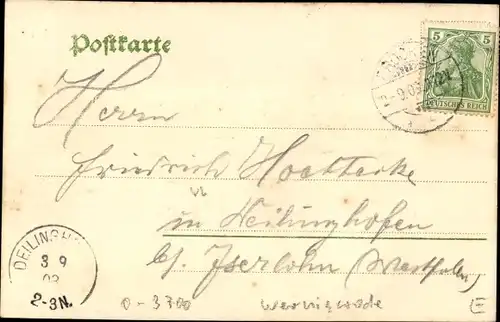 Postkarte
5 5
DEUTSCHES REICH
Herrn
Friedrich Hoetterke
in Deilinghofen
bei Iserlohn (Westfalen)
DEILINGH
3 9
03
2-3N.
D-3700 Wernigerode
E